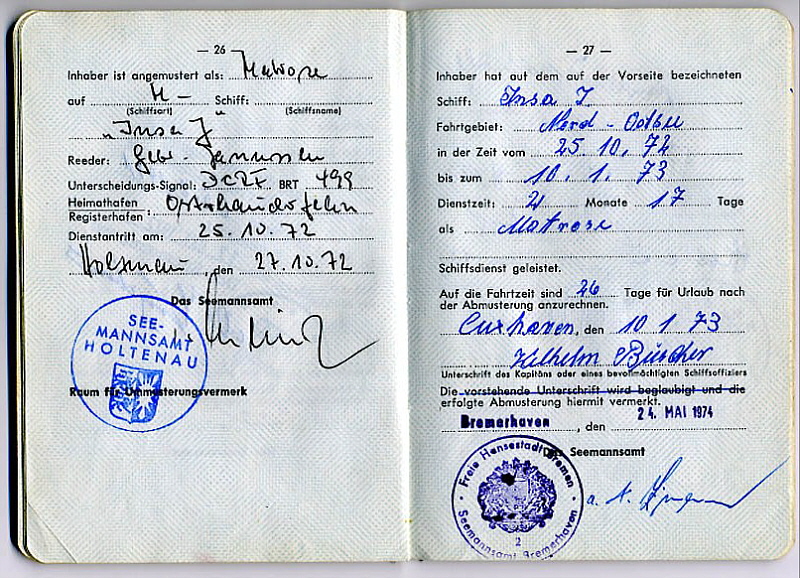 — 26 —
Inhaber ist angemustert als: Matrose
auf M- Schiff:
(Schiffsart) (Schiffsname)
„Insa J"
Reeder: Gebr. Janussen
Unterscheidungs-Signal: BRT 499
Heimathafen
Registerhafen: Ostrhauderfehn
Dienstantritt am: 25.10.72
Holtenau, den 27.10.72
Das Seemannsamt
SEE-
MANNSAMT
HOLTENAU
Raum für Ummusterungsvermerk
— 27 —
Inhaber hat auf dem auf der Vorseite bezeichneten
Schiff: Insa J
Fahrtgebiet: Nord - Ostsee
in der Zeit vom 25. 10. 72
bis zum 10. 1. 73
Dienstzeit: 2 Monate 17 Tage
als Matrose
Schiffsdienst geleistet.
Auf die Fahrtzeit sind 26 Tage für Urlaub nach
der Abmusterung anzurechnen.
Cuxhaven, den 10 1 73
Wilhelm Büscher
Unterschrift des Kapitäns oder eines bevollmächtigten Schiffsoffiziers
Die vorstehende Unterschrift wird beglaubigt und die
erfolgte Abmusterung hiermit vermerkt.
Bremerhaven, den 24. MAI 1974
Seemannsamt
Freie Hansestadt Bremen
Seemannsamt Bremerhaven
2